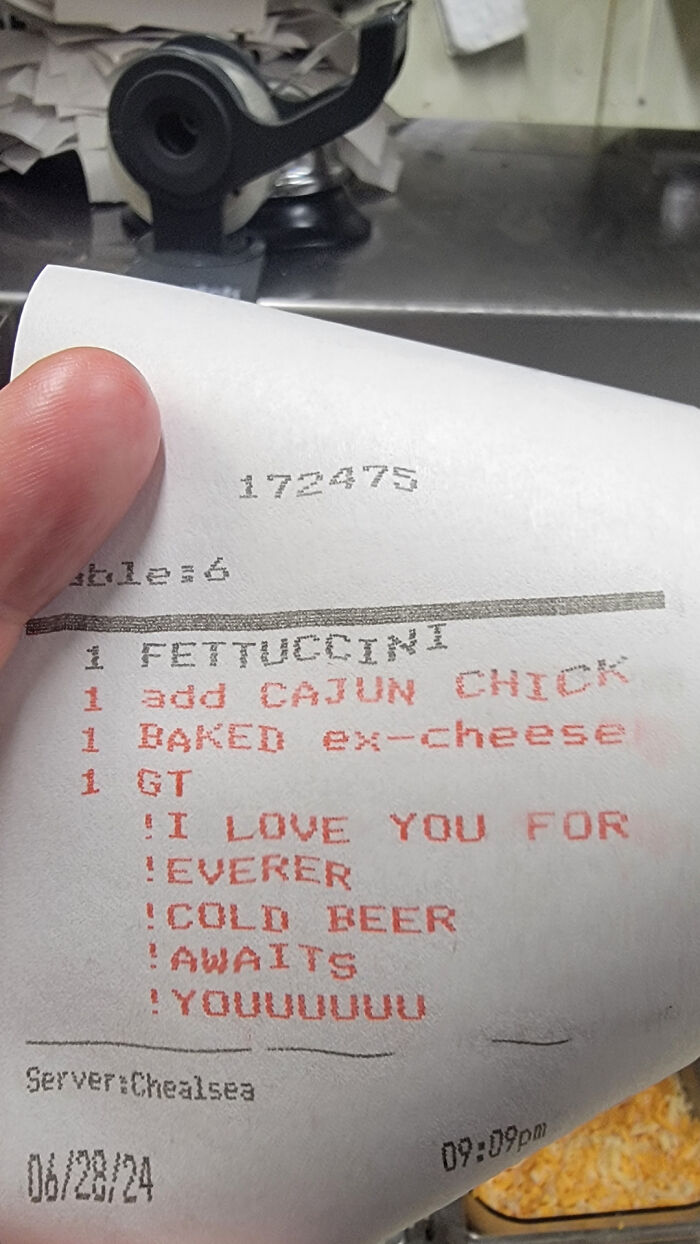 172475
able:6
1 FETTUCCINI
1 add CAJUN CHICK
1 BAKED ex-cheese
1 GT
!I LOVE YOU FOR
!EVERER
!COLD BEER
!AWAITS
!YOUUUUUUU
Server:Chealsea
06/28/24 09:09pm